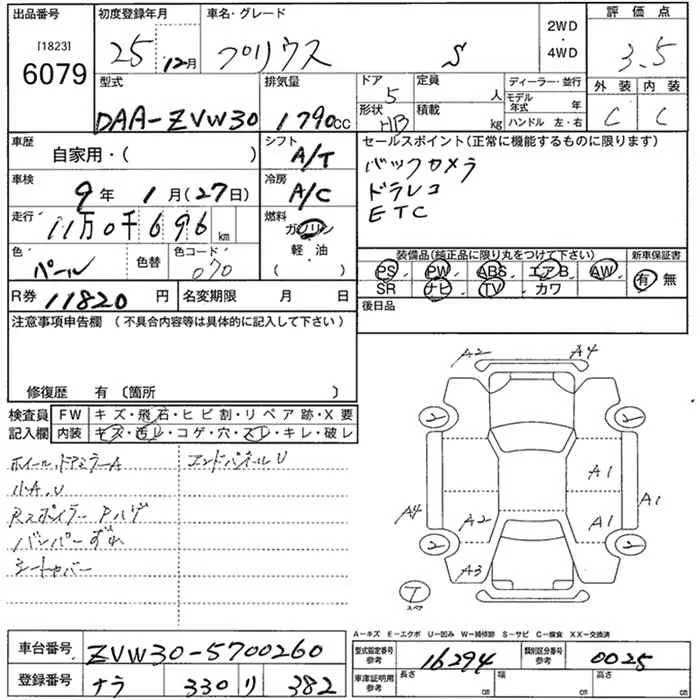 出品番号 初度登録年月 車名・グレード 2WD 4WD 評価点
[1823] 6079 25 12月 プリウス S 3.5
型式 排気量 ドア 5 定員 人 ディーラー・並行 外装 内装
DAA-ZVW30 1790cc 形状 HB 積載 kg モデル年式 年 ハンドル 左・右 C C
車歴 自家用・( ) シフト A/T セールスポイント(正常に機能するものに限ります)
車検 9年 1月(27日) 冷房 A/C バックカメラ
走行 11万0千696km 燃料 ガソリン ドラレコ
軽・油 ETC
( )
色 パール 色替 色コード 070 装備品(純正品に限り丸をつけて下さい) 新車保証書
PS PW ABS エアB. AW 有 無
R券 11820円 名変期限 月 日 SR ナビ TV カワ
注意事項申告欄 (不具合内容等は具体的に記入して下さい) 後日品
修復歴 有 〔箇所 〕
検査員記入欄 FW キズ・飛石・ヒビ割・リペア跡・X要
内装 キズ・汚レ・コゲ・穴・スレ・キレ・破レ
ホイール、ドアミラーA エンドパネルU
小A.U
Rスポイラー Pハゲ
バンパーずれ
シートカバー
A2 A4
2 2
A1
A4 A2 A1 A1
2 2
A3
T
スペア
A-キズ E-エクボ U-凹み W-補修跡 S-サビ C-腐食 XX-交換済
車台番号 ZVW30-5700260 型式指定番号参考 16294 類別区分番号参考 0025
登録番号 ナラ 330 リ 382 車庫証明用参考 長さ cm 幅 cm 高さ cm